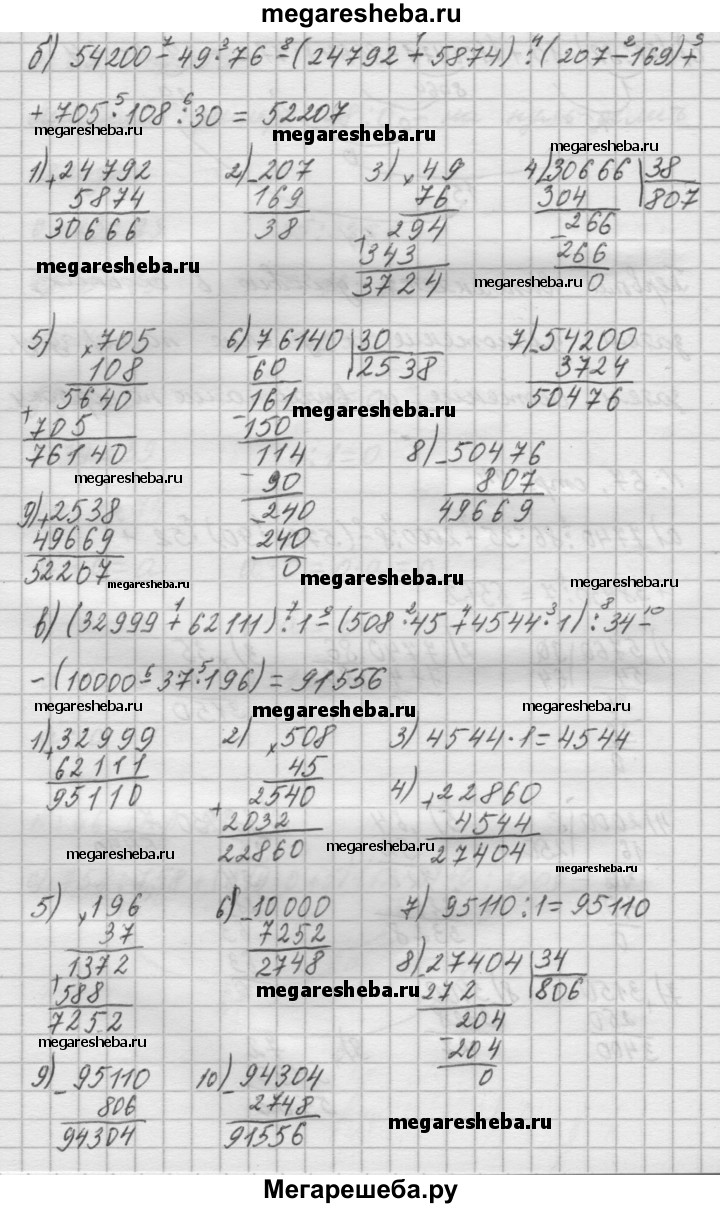 megaresheba.ru
б) 54200 - 49 · 76 - (24792 + 5874) : (207 - 169) +
7 3 8 1 4 2 9
+ 705 · 108 : 30 = 52207
5 6
megaresheba.ru megaresheba.ru megaresheba.ru
1) + 24792 2) - 207 3) × 49 4) - 30666 | 38
5874 169 76 304 807
30666 38 294 - 266
+ 343 266
3724 0
megaresheba.ru megaresheba.ru
5) × 705 6) - 76140 | 30 7) - 54200
108 60 2538 3724
5640 - 161 50476
+ 705 150
76140 114
- 90
- 240
240
0
megaresheba.ru megaresheba.ru
8) - 50476
807
49669
9) + 2538
49669
52207
megaresheba.ru megaresheba.ru
в) (32999 + 62111) : 1 - (508 · 45 + 4544 · 1) : 34 -
1 7 9 2 4 3 8 10
- (10000 - 37 · 196) = 91556
6 5
megaresheba.ru megaresheba.ru megaresheba.ru
1) + 32999 2) × 508 3) 4544 · 1 = 4544
62111 45
95110 2540
+ 2032
22860
4) + 22860
4544
27404
megaresheba.ru megaresheba.ru megaresheba.ru
5) × 196 6) - 10000 7) 95110 : 1 = 95110
37 7252
+ 1372 2748
588
7252
8) - 27404 | 34
272 806
- 204
204
0
megaresheba.ru megaresheba.ru
9) - 95110 10) - 94304
806 2748
94304 91556
megaresheba.ru
Мегарешеба.ру